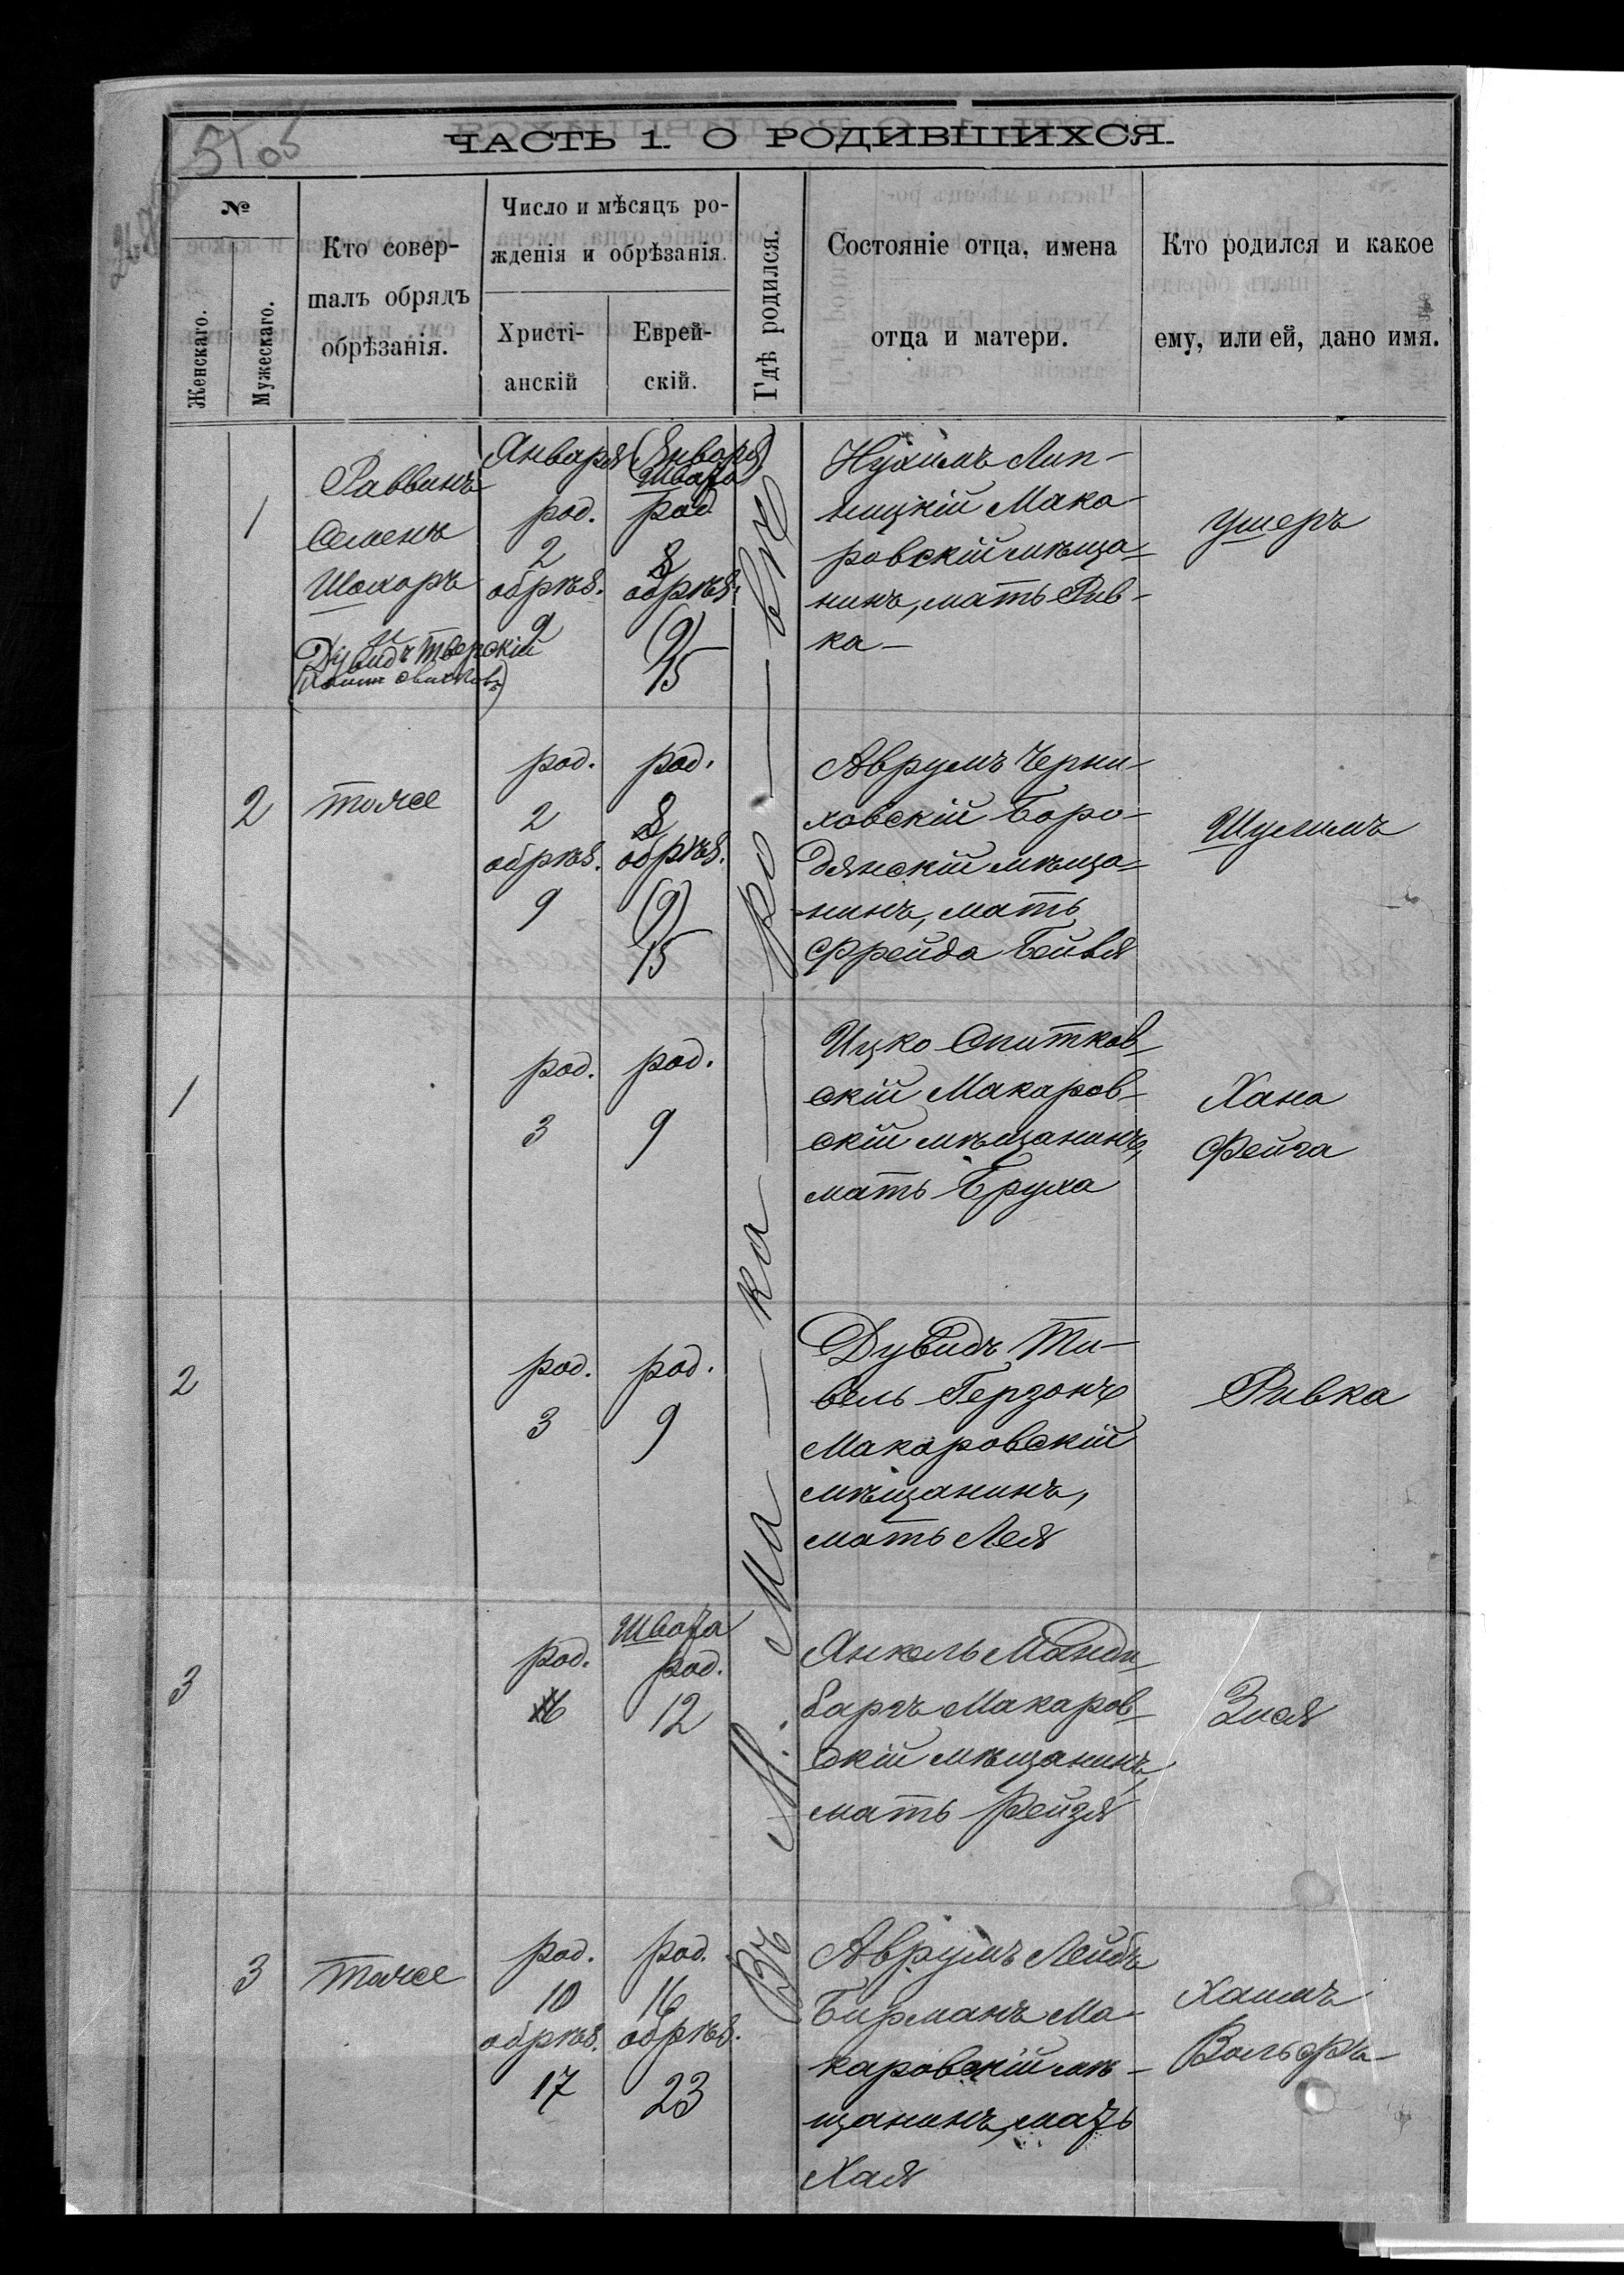 5705
ЧАСТЬ 1. О РОДИВШИХСЯ.
№
Женскаго.
Мужескаго.
Кто совер-
шалъ обрядъ
обрѣзанія.
Число и мѣсяцъ ро-
жденія и обрѣзанія.
Христі-
анскій
Еврей-
скій.
Гдѣ родился.
Состояніе отца, имена
отца и матери.
Кто родился и какое
ему, или ей, дано имя.
Въ М. Ма - ка - ро - вѣ
1
Раввинъ
Семенъ
Шохоръ
и
Дувидъ Тверскій
Января
род.
2
обрѣз.
9
(Января)
Швата
род
8
обрѣз.
(9)
15
Нухимъ Лип-
ницкій Мака-
ровскій мѣща-
нинъ, мать Рив-
ка -
Ушеръ
2
тоже
род.
2
обрѣз.
9
род.
8
обрѣз.
(9)
15
Аврумъ Черни-
ховскій Боро-
дянскій мѣща-
нинъ, мать
Фрейда Бейля
Шулимъ
1
род.
3
род.
9
Ицко Спитков-
скій Макаров-
скій мѣщанинъ,
мать Бруха
Хана
Фейга
2
род.
3
род.
9
Дувидъ Ти-
вель Герзонъ
Макаровскій
мѣщанинъ,
мать Лея
Ривка
3
род.
6
Швата
род.
12
Янкель Манди-
баргъ Макаров-
скій мѣщанинъ,
мать Рейзя
Злея
3
тоже
род.
10
обрѣз.
17
род.
16
обрѣз.
23
Аврумъ Лейбъ
Бирманъ Ма-
каровскій мѣ-
щанинъ, мать
Хая
Хаимъ
Вольфъ